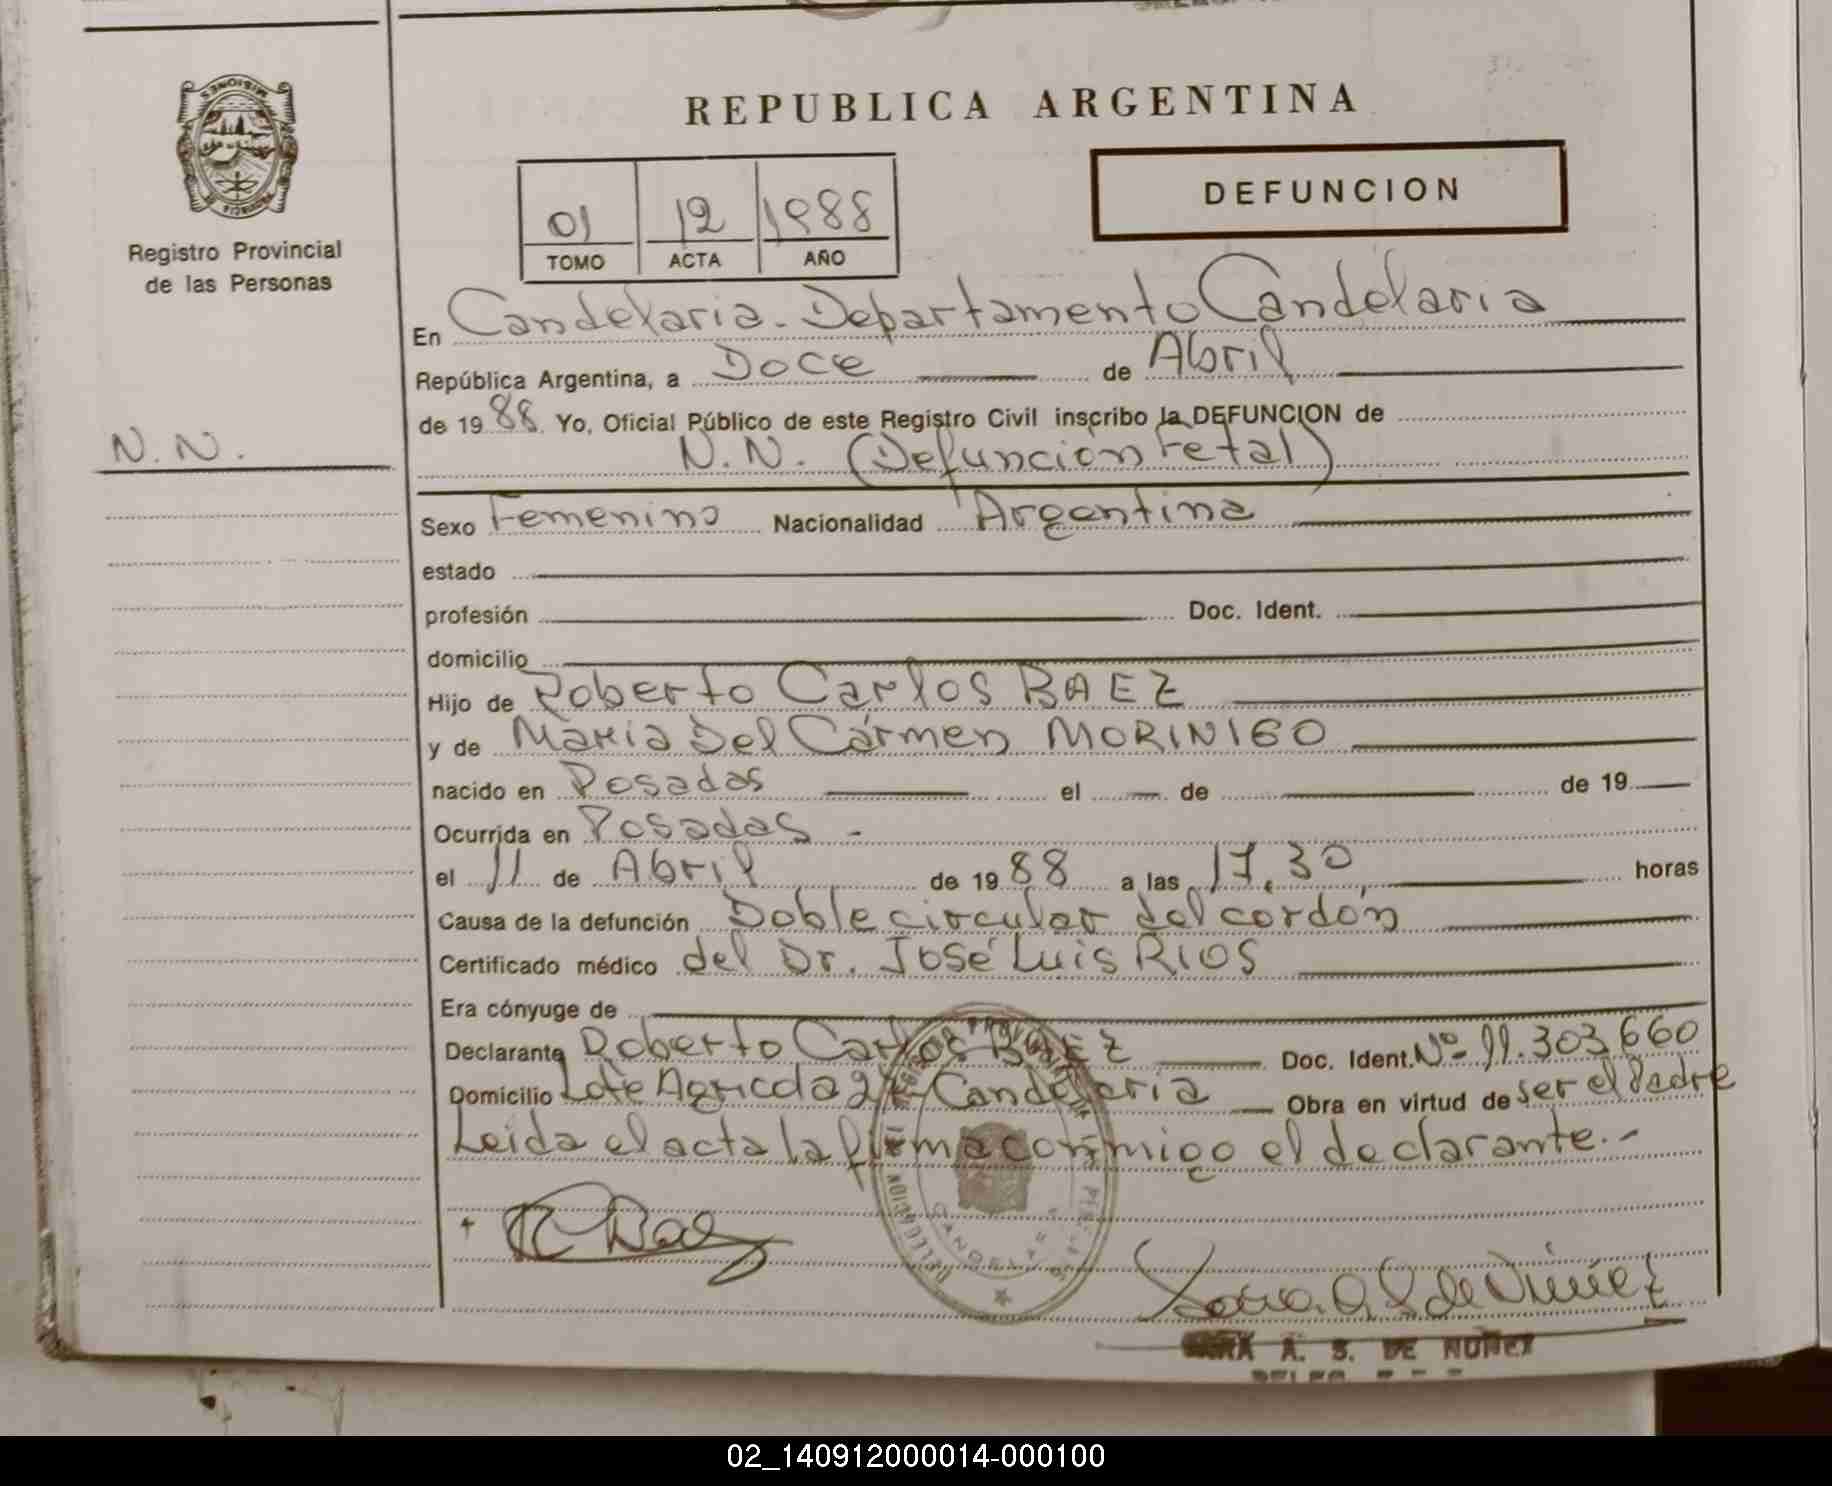 MISIONES
PROVINCIA DE
Registro Provincial
de las Personas
N. N.
REPUBLICA ARGENTINA
DEFUNCION
01 12 1988
TOMO ACTA AÑO
En Candelaria - Departamento Candelaria
República Argentina, a Doce de Abril
de 1988. Yo, Oficial Público de este Registro Civil inscribo la DEFUNCION de
N. N. (Defunción Fetal)
Sexo Femenino Nacionalidad Argentina
estado
profesión Doc. Ident.
domicilio
Hijo de Roberto Carlos BAEZ
y de María Del Cármen MORINIGO
nacido en Posadas el de de 19
Ocurrida en Posadas -
el 11 de Abril de 1988 a las 17,30, horas
Causa de la defunción Doble circular del cordón
Certificado médico del Dr. José Luis RIOS
Era cónyuge de
Declarante Roberto Carlos BAEZ Doc. Ident. Nº 11.303.660
Domicilio Lote Agricola Candelaria Obra en virtud de ser el Padre
Leída el acta la firma conmigo el declarante.-
R Baez
de Núñez
A. S. DE NUÑEZ
02_140912000014-000100